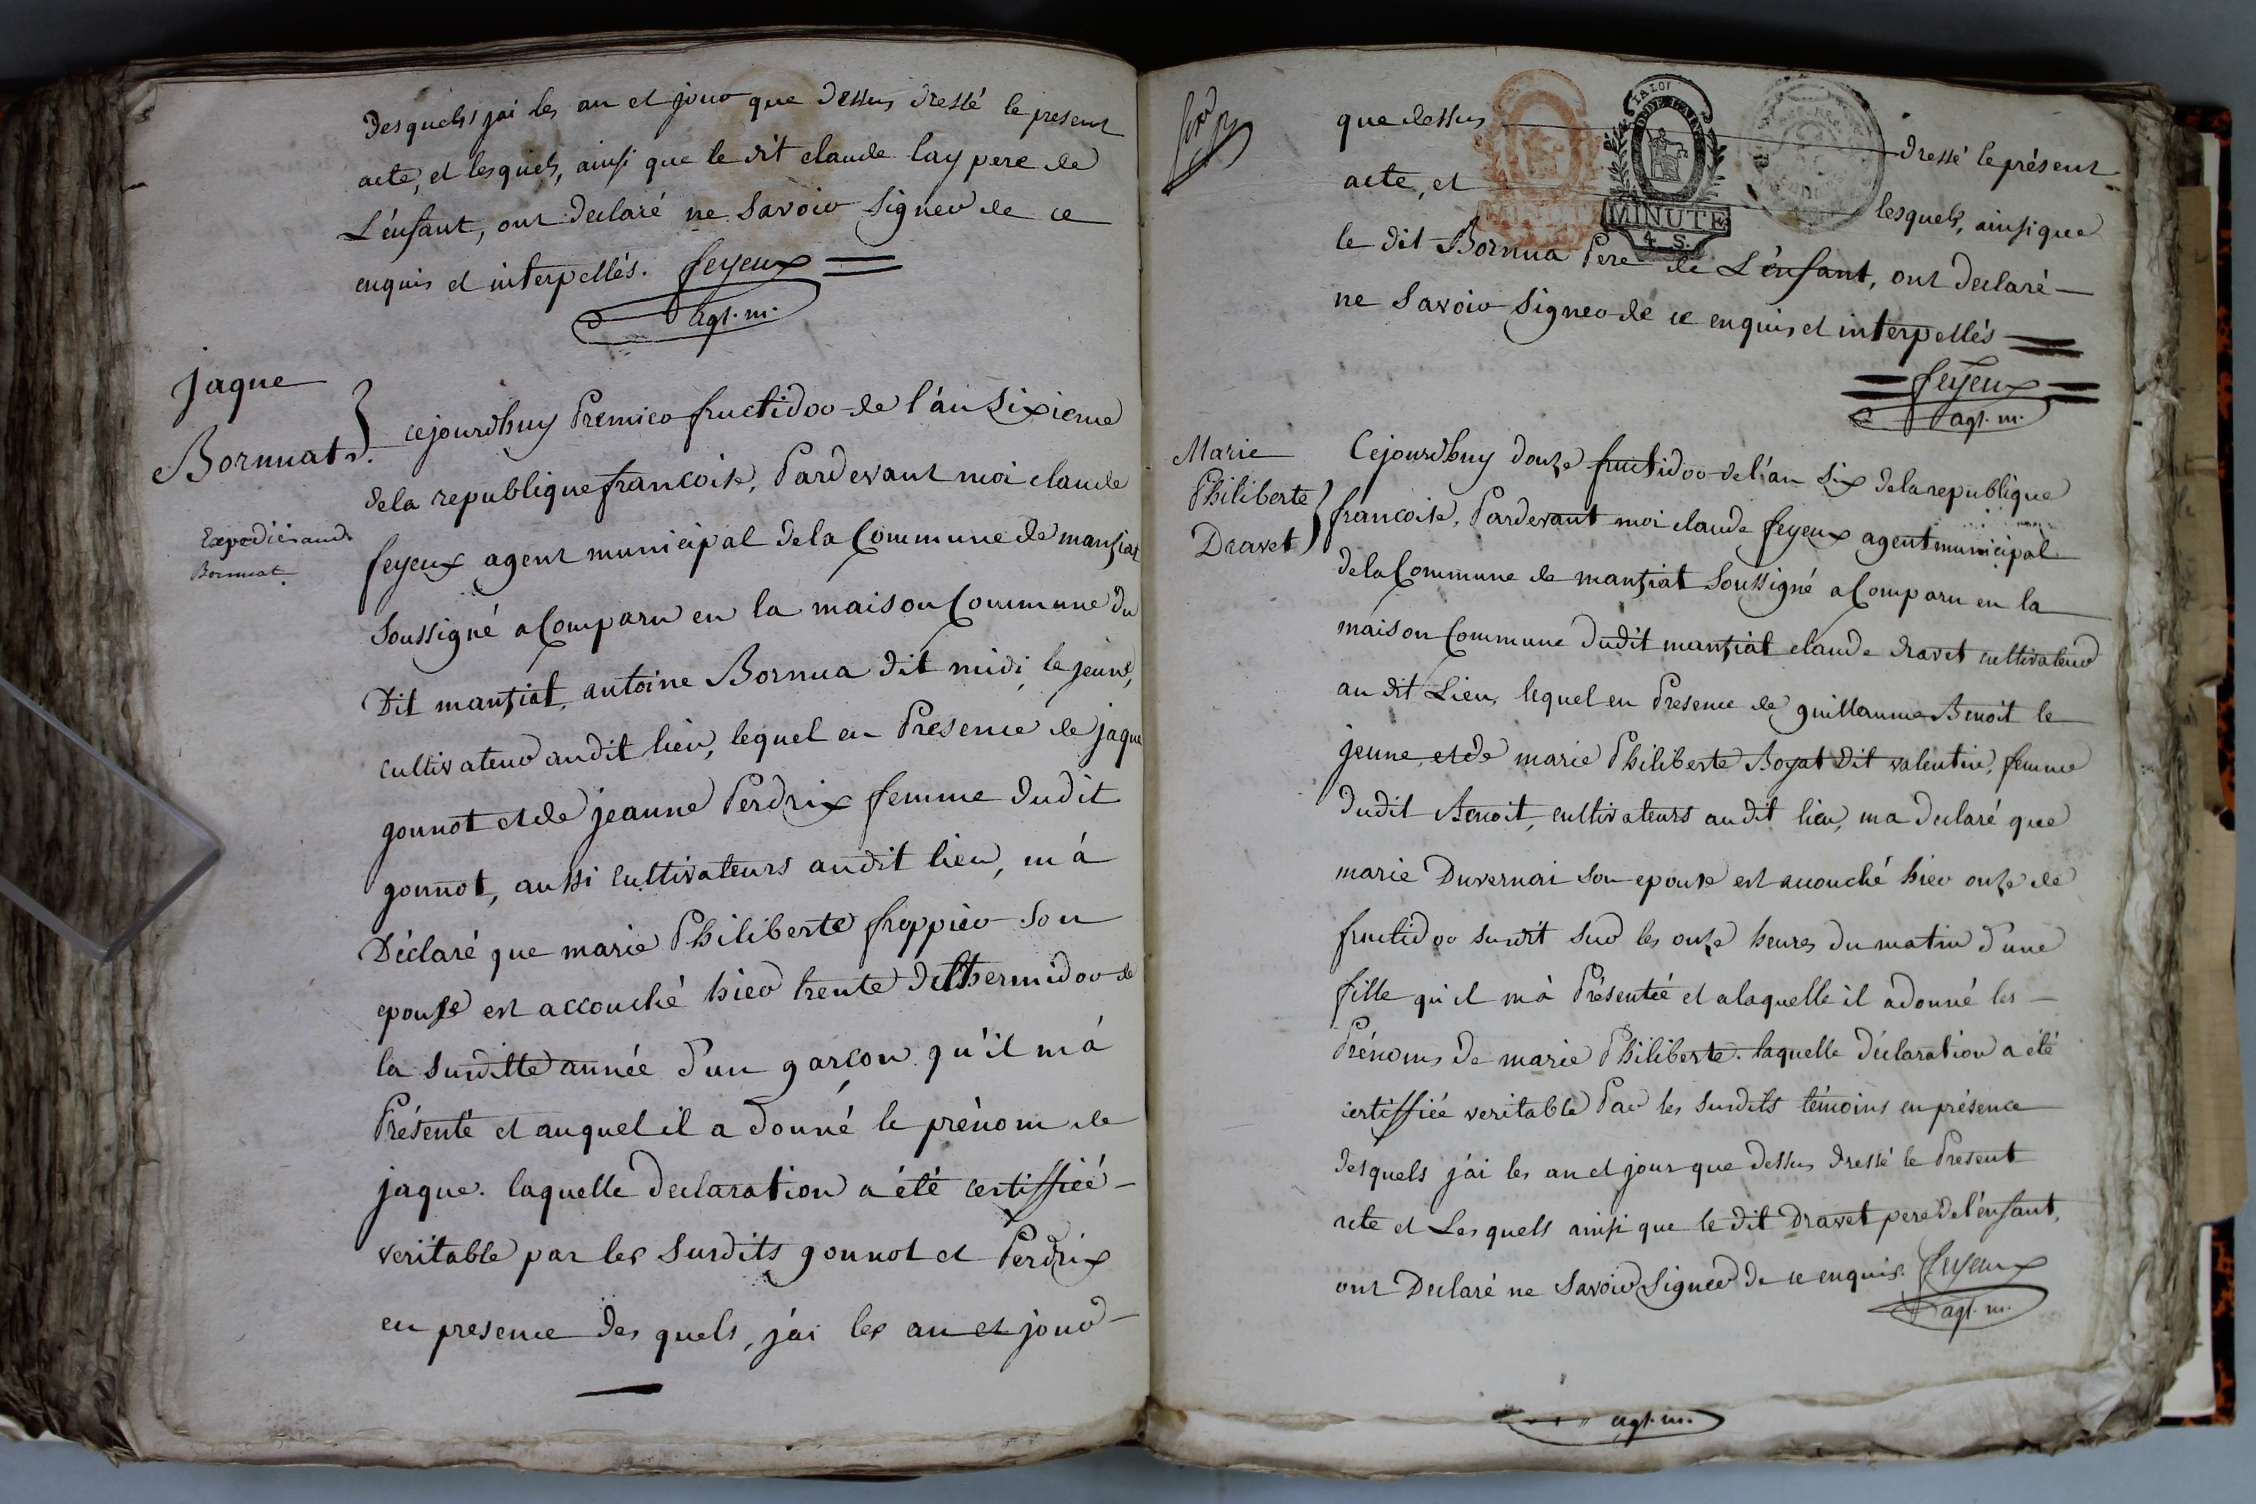 desquels jai les an et jour que dessus dressé le present
acte, et lesquels, ainsi que le dit claude lay pere de
L'énfant, ont declaré ne Savoir Signer de ce
enquis et interpellés. feyeux
agt. m.
jaque
Bornuat
Expedié aud.
Bornuat
cejourdhuy Premier fructidor de l'án Sixieme
dela republique francoise, Pardevant moi claude
feyeux agent municipal dela Commune de mansiat
Soussigné a Comparu en la maison Commune du
Dit mansiat, antoine Bornua dit midi, le jeune,
cultivateur audit lieu, lequel en Presence de jaque
gonnot et de jeanne Perdrix femme dudit
gonnot, aussi cultivateurs audit lieu, m'á
Déclaré que marie Philiberte froppier Son
epouse est accouché hier trente de thermidor de
la susditte année d'un garcon qu'il m'á
Présenté et auquel il a donné le prénom de
jaque. laquelle declaration a été certiffiéé
veritable par les Susdits gonnot et Perdrix
en presence des quels, j'ai les an et jour
que dessus dressé le présent
acte, et lesquels, ainsi que
LA LOI
MINUTE
4 S.
le dit Bornua Pere de L'énfant, ont declaré
ne Savoir Signer de ce enquis et interpellés
feyeux
agt. m.
Marie
Philiberte
Dravet
Cejourdhuy douze fructidor de l'an Six dela republique
francoise, Pardevant moi claude feyeux agent municipal
dela Commune de mansiat Soussigné a Comparu en la
maison Commune dudit mansiat claude dravet cultivateur
au dit Lieu, lequel en Presence de guillaume Benoit le
jeune, et de marie Philiberte Boyat dit valentin, femme
dudit Benoit, cultivateurs audit lieu, ma declaré que
marie Duvernai son epouse est accouché hier onze de
fructidor susdit sur les onze heures du matin d'une
fille qu'il m'á Présentée et a laquelle il a donné les
Prénoms de marie Philiberte. laquelle déclaration a été
certiffiée veritable Par les susdits témoins en présence
desquels j'ai les an et jour que dessus dressé le Present
acte et Lesquels ainsi que le dit Dravet pere de l'énfant,
ont Declaré ne Savoir Signer de ce enquis. feyeux
agt. m.
agt. m.